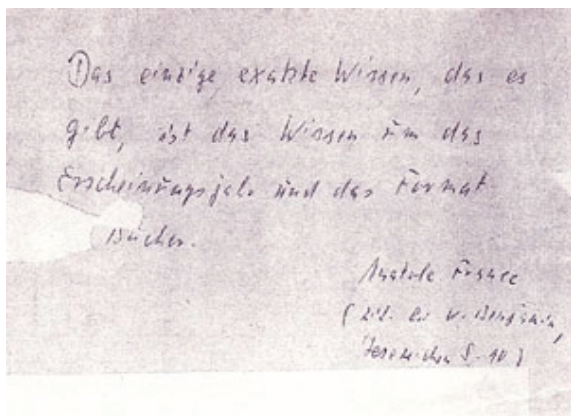 Das einzige exakte Wissen, das es
gibt, ist das Wissen um das
Erscheinungsjahr und das Format
Bücher.
Anatole France
(zit. bei W. Benjamin,
S. 10)